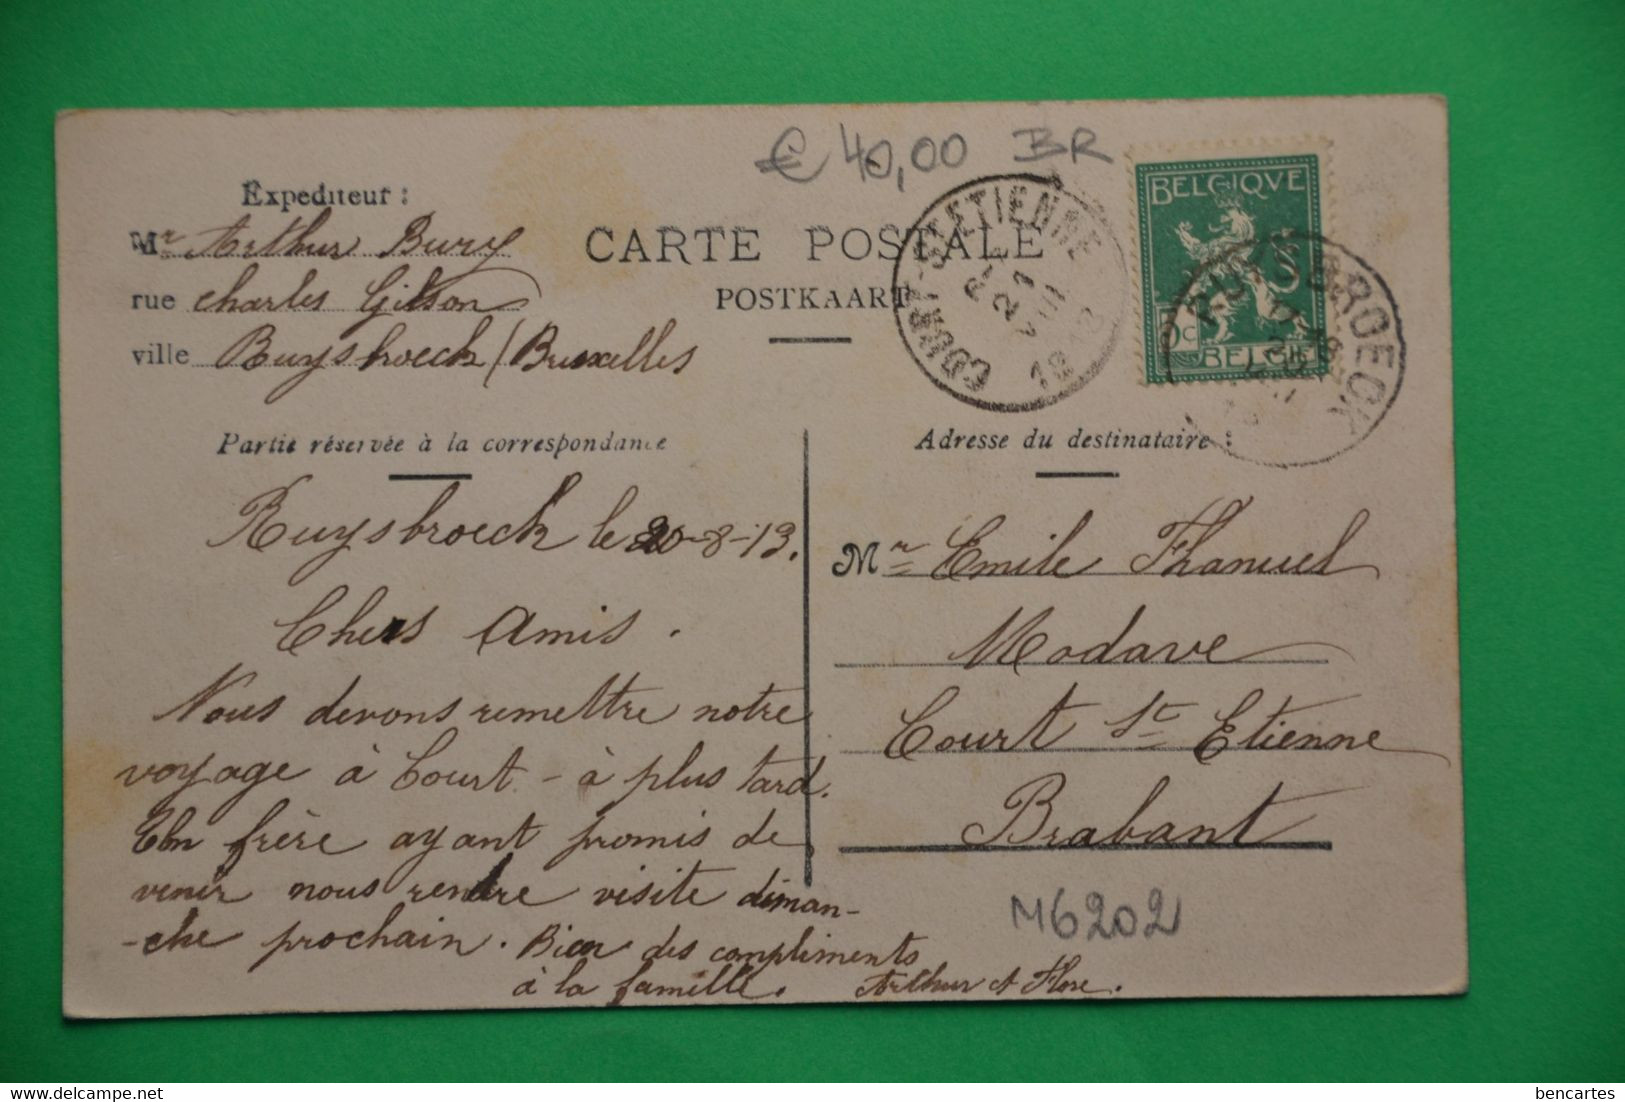 € 40,00 BR
Expediteur :
Mr Arthur Bury
rue Charles Gilson
ville Ruysbroeck / Bruxelles
CARTE POSTALE
POSTKAART
COURT-ST ETIENNE
BELGIQVE
5c
BELGIE
RUYSBROECK
Partie réservée à la correspondance
Adresse du destinataire :
Ruysbroeck le 20-8-13.
Chers Amis.
Nous devons remettre notre
voyage à Court - à plus tard.
Un frère ayant promis de
venir nous rendre visite diman-
-che prochain. Bien des compliments
à la famille. Arthur et Flore.
Mr Emile Thanuel
Modave
Court St Etienne
Brabant
M6202
bencartes